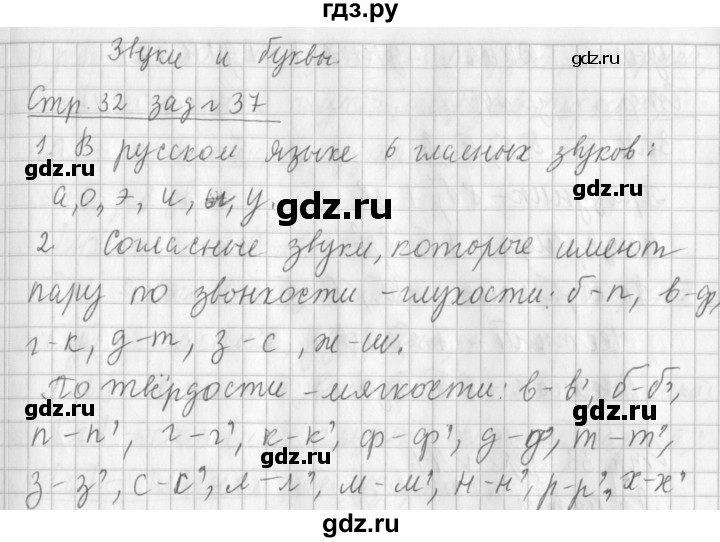 гдз.ру
Звуки и буквы.
gdz.ru
Стр. 32 зад. 37
1. В русском языке 6 гласных звуков:
gdz.ru
а, о, э, и, ы, у.
gdz.ru
2. Согласные звуки, которые имеют
пару по звонкости - глухости: б-п, в-ф,
г-к, д-т, з-с, ж-ш.
По твёрдости - мягкости: в-в', б-б',
gdz.ru
gdz.ru
п-п', г-г', к-к', ф-ф', д-д', т-т',
gdz.ru
з-з', с-с', л-л', м-м', н-н', р-р', х-х'
gdz.ru